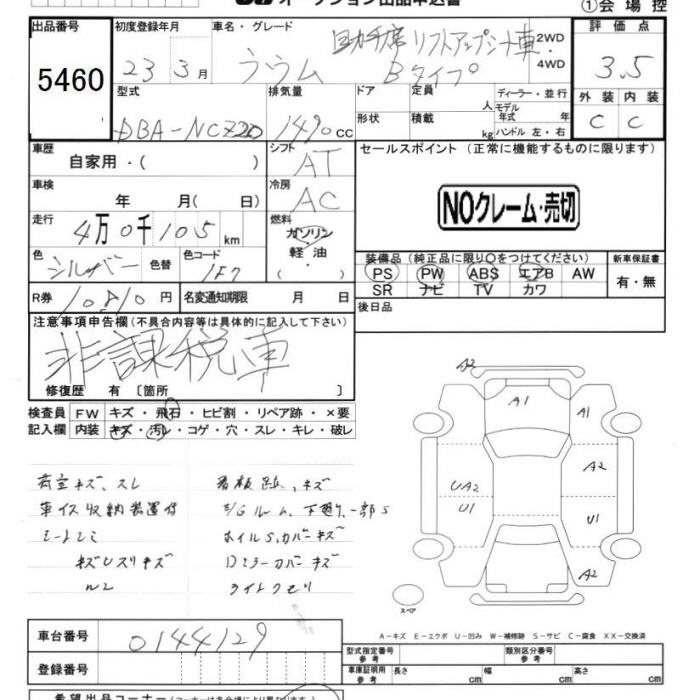 オークション出品申込書
①会場控
出品番号 初度登録年月 車名・グレード 評価点
5460 23年3月 ラウム 助手席リフトアップシート車 Bタイプ 2WD・4WD 3.5
型式 排気量 ドア 定員 人 ディーラー・並行 外装 内装
DBA-NCZ20 1490 CC 形状 積載 kg モデル年式 年 ハンドル 左・右 C C
車歴 シフト セールスポイント (正常に機能するものに限ります)
自家用・( ) AT
車検 冷房
年 月( 日) AC NOクレーム・売切
走行 燃料
4万0千105km ガソリン
軽油
( )
色 色コード 装備品 (純正品に限り○をつけてください) 新車保証書
シルバー 色替 1F7 PS PW ABS エアB AW 有・無
SR ナビ TV カワ
R券 10810円 名変通知期限 月 日 後日品
注意事項申告欄 (不具合内容等は具体的に記入して下さい)
非課税車
修復歴 有 〔箇所 〕
検査員 FW キズ・飛石・ヒビ割・リペア跡・×要
記入欄 内装 キズ・汚レ・コゲ・穴・スレ・キレ・破レ
荷室キズ、スレ 看板跡、キズ
車イス収納装置付 E/Gルーム、下廻り、一部S
シートシミ ホイルS、カバーキズ
キズ Dミラーカバーキズ
ライトクモリ
A2
A1 A1
A2
UA2
U1 U1
A2
スペア
A-キズ E-エクボ U-凹み W-補修跡 S-サビ C-腐食 XX-交換済
車台番号 0144129 型式指定番号 参考 類別区分番号 参考
登録番号 車庫証明用 参考 長さ cm 幅 cm 高さ cm
希望出品コーナー